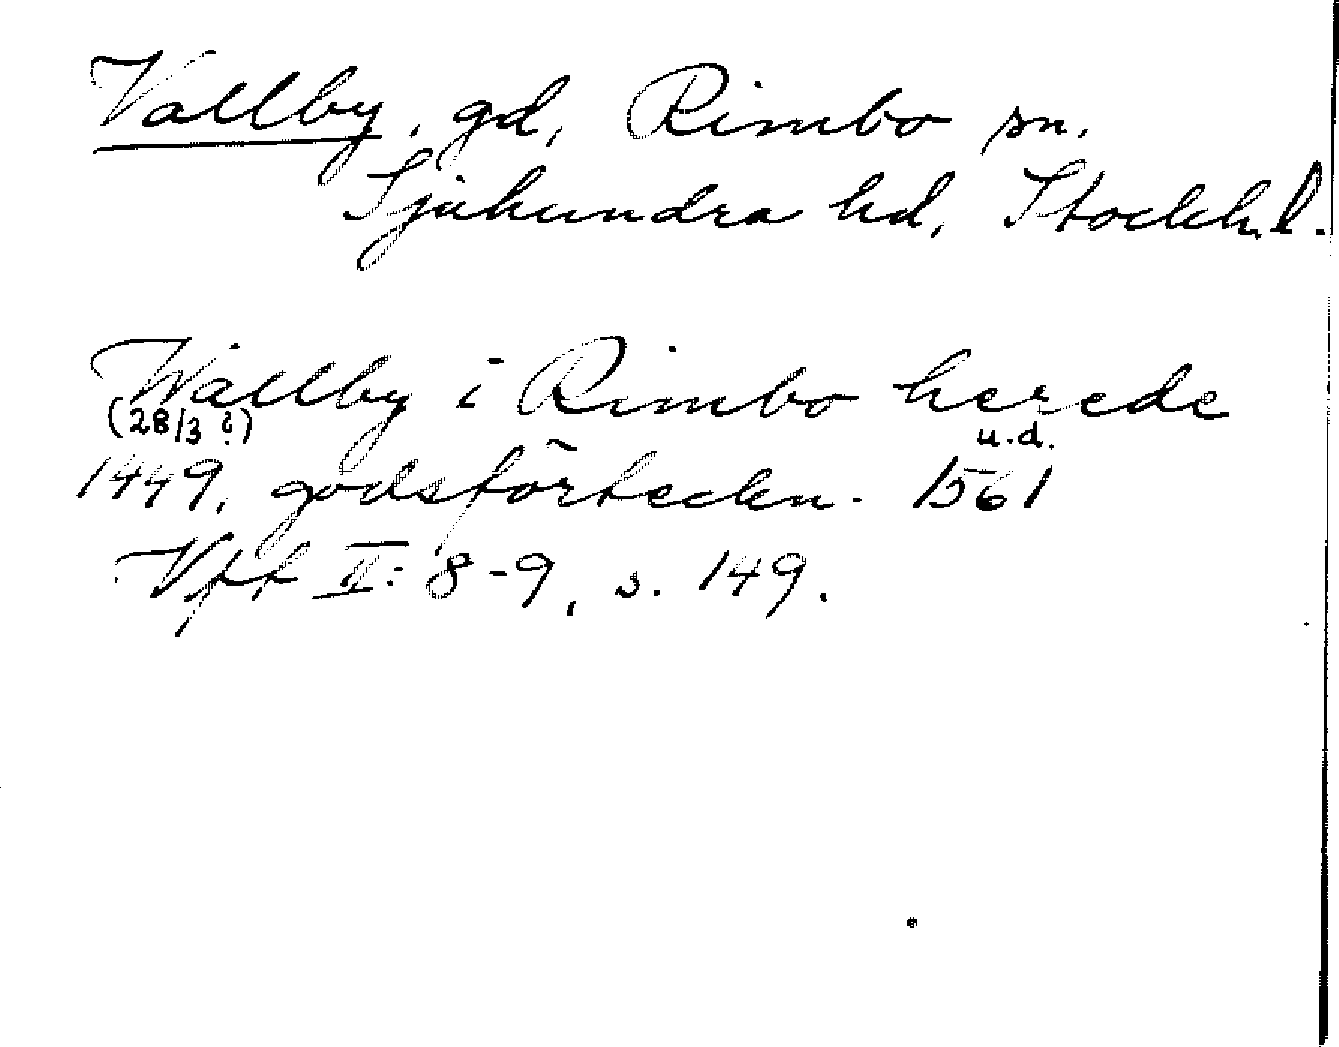 Vallby, gd, Rimbo sn.
Sjuhundra hd, Stockh. l.
Wallby i Rimbo herede
(28/3 ?) u.d.
1449, godsförteckn. 1561
Vff II: 8-9, s. 149.